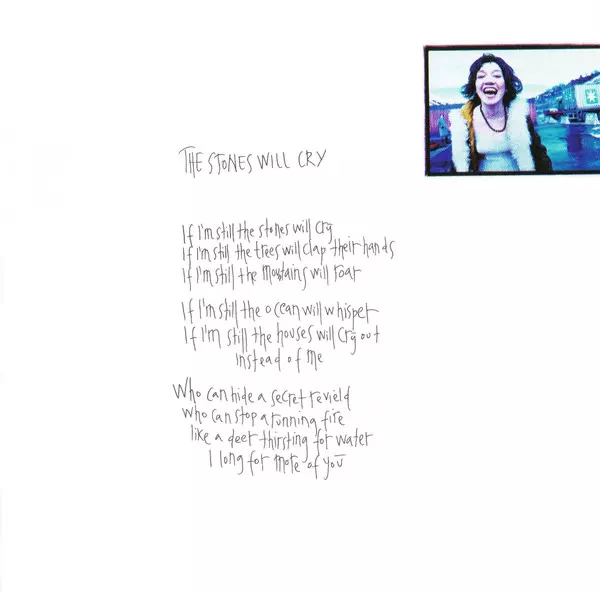 THE STONES WILL CRY
If I'm still the stones will cry
If I'm still the trees will clap their hands
If I'm still the mountains will roar
If I'm still the ocean will whisper
If I'm still the houses will cry out
instead of me
Who can hide a secret revield
who can stop a running fire
like a deer thirsting for water
I long for more of you